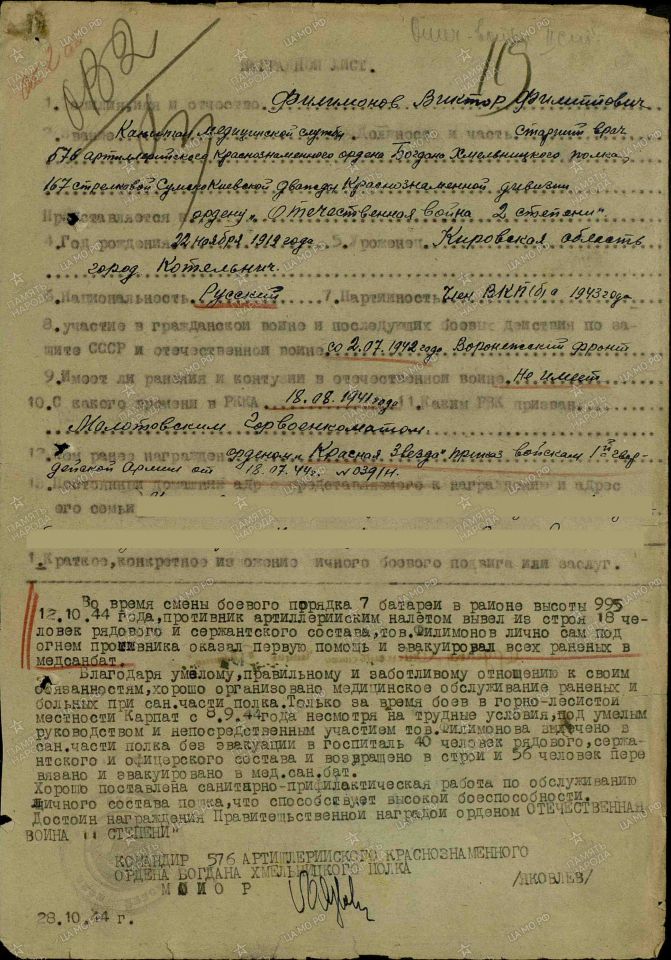 НАГРАДНОЙ ЛИСТ.
119
1. Фамилия, имя и отчество Филимонов Виктор Филиппович
Капитан медицинской службы Должность и часть старший врач
576 артиллерийского Краснознаменного ордена Богдана Хмельницкого полка,
167 стрелковой Сумско Киевской дважды Краснознаменной дивизии
Представляется к ордену „Отечественная война 2 степени"
4. Год рождения 22 ноября 1919 года 5. Уроженец Кировская область
город Котельнич.
6. Национальность Русский 7. Партийность Член ВКП(б) с 1943 года
8. участие в гражданской войне и последующих боевых действия по за-
щите СССР и отечественной войне со 2.07.1942 года Воронежский фронт
9. Имеет ли ранения и контузии в отечественной войне Не имеет
10. С какого времени в РККА 18.08.1941 года 11. Каким РВК призван
Молотовским Горвоенкоматом
12. Чем ранее награжден орденом „Красная Звезда" приказ войскам 1й гвар-
дейской Армии от 18.07.44г. № 039/н.
13. Постоянный домашний адрес представляемого к награждению и адрес
его семьи
1. Краткое, конкретное изложение личного боевого подвига или заслуг.
Во время смены боевого порядка 7 батареи в районе высоты 995
12.10.44 года, противник артиллерииским налетом вывел из строя 18 че-
ловек рядового и сержантского состава, тов. Филимонов лично сам под
огнем противника оказал первую помощь и эвакуировал всех раненых в
медсанбат.
Благодаря умелому, правильному и заботливому отношению к своим
обязанностям, хорошо организовано медицинское обслуживание раненых и
больных при сан. части полка. Только за время боев в горно-лесистой
местности Карпат с 8.9.44 года несмотря на трудные условия, под умелым
руководством и непосредственным участием тов. Филимонова вылечено в
сан. части полка без эвакуации в госпиталь 40 человек рядового, сержа-
нтского и офицерского состава и возвращено в строй и 56 человек пере
вязано и эвакуировано в мед. сан. бат.
Хорошо поставлена санитарно-прифилактическая работа по обслуживанию
личного состава полка, что способствует высокой боеспособности.
Достоин награждения Правительственной наградой орденом ОТЕЧЕСТВЕННАЯ
ВОЙНА II СТЕПЕНИ"
КОМАНДИР 576 АРТИЛЛЕРИЙСКОГО КРАСНОЗНАМЕННОГО
ОРДЕНА БОГДАНА ХМЕЛЬНИЦКОГО ПОЛКА
МАЙОР /ЯКОВЛЕВ/
28.10.44 г.